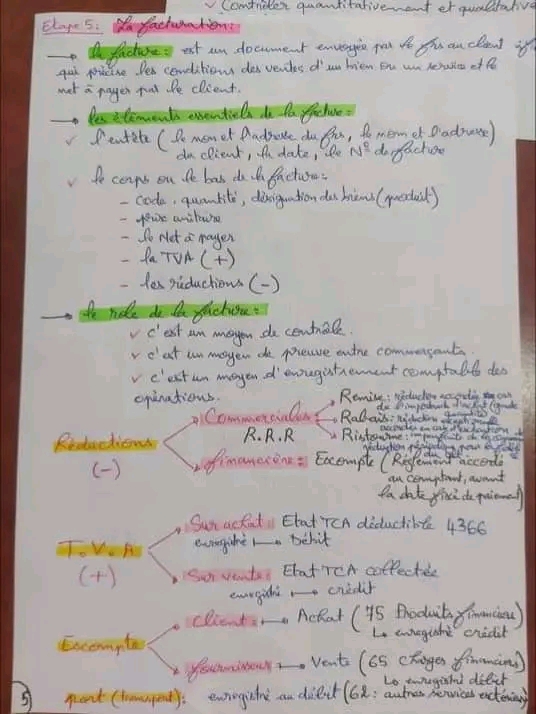 ✓ Contrôler quantitativement et qualitative
Etape 5: La facturation:
→ la facture: est un document envoyée par le frs au client
qui précise les conditions des ventes d'un bien ou un service et le
net à payer par le client.
→ les éléments essentiels de la facture:
✓ l'entête (le nom et l'adresse du frs, le nom et l'adresse)
du client, la date, le N° de facture
✓ le corps ou le bas de la facture:
- code, quantité, désignation des biens (produit)
- prix unitaire
- le Net à payer
- la TVA (+)
- les réductions (-)
→ le role de la facture:
✓ c'est un moyen de contrôle.
✓ c'est un moyen de preuve entre commerçants.
✓ c'est un moyen d'enregistrement comptable des
opérations.
Réductions
(-)
Commerciales
R.R.R
Remise: réduction accordée en cas
de l'importance d'achat (grande
quantité)
Rabais: réduction
accordée en cas
Ristourne:
financière: Escompte (Règlement accordé
au comptant, avant
la date fixée de paiement)
T.V.A
(+)
Sur achat: Etat TCA déductible 4366
enregistré → Débit
Sur vente: Etat TCA collectée
enregistré → crédit
Escompte
client: → Achat (75 Produits financiers)
↳ enregistré crédit
fournisseur → Vente (65 charges financières)
↳ enregistré débit
port (transport): enregistré au débit (62: autres services extérieurs)
5